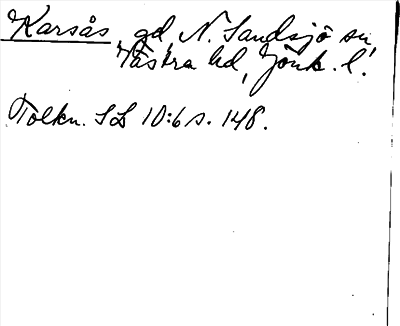 Karsås, gd N. Sandsjö sn,
Västra hd, Jönk. l.
Tolkn. SL 10:6 s. 148.